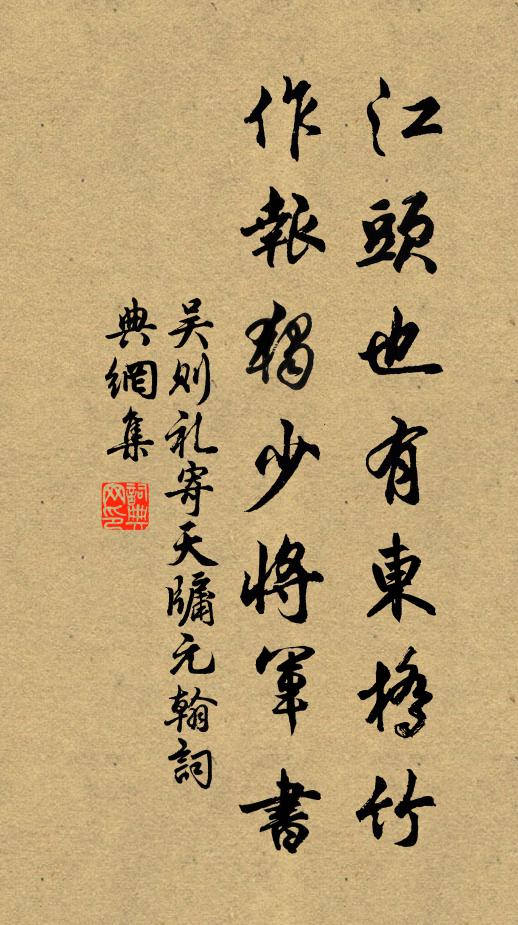 江頭也有東橋竹
作報獨少將軍書
吴則礼寄天牖元翰詞
典網集
詞典
网印